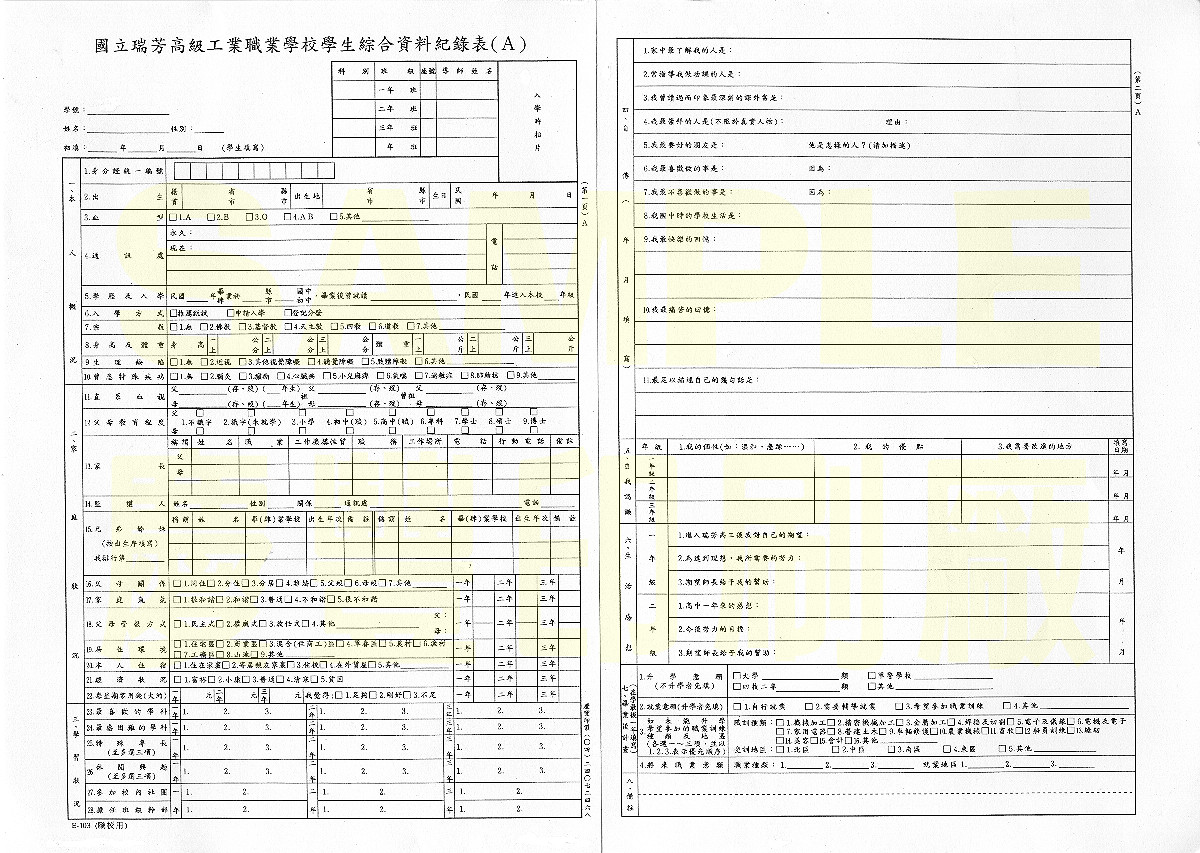 國立瑞芳高級工業職業學校學生綜合資料紀錄表(A)
科 別 班 級 座號 導 師 姓 名
一年 班
二年 班
三年 班
年 班
入學時相片
學號：
姓名： 性別：
初填： 年 月 日 (學生填寫)
一、本人概況
1.身分證統一編號
2.出生 籍貫 省市 縣市 出生地 省市 縣市 生日 民國 年 月 日
3.血型 □1.A □2.B □3.O □4.AB □5.其他
4.通訊處 永久： 現在： 電話
5.學歷及入學 民國 年畢肄業於 縣市 國中初中，畢業後曾就讀 ，民國 年進入本校 年級
6.入學方式 □推薦甄試 □申請入學 □登記分發
7.宗教 □1.無 □2.佛教 □3.基督教 □4.天主教 □5.回教 □6.道教 □7.其他
8.身高及體重 身高 一上 公分 二上 公分 三上 公分 體重 一上 公斤 二上 公斤 三上 公斤
9.生理缺陷 □1.無 □2.近視 □3.其他視覺障礙 □4.聽覺障礙 □5.肢體障礙 □6.其他
10.曾患特殊疾病 □1.無 □2.肺炎 □3.癲癇 □4.心臟病 □5.小兒麻痺 □6.氣喘 □7.過敏症 □8.肺結核 □9.其他
二、家庭狀況
11.直系血親 父 (存、歿) ( 年生) 祖父 (存、歿) 曾祖父 (存、歿)
母 (存、歿) ( 年生) 母 (存、歿) 母 (存、歿)
12.父母教育程度 父 □ 母 □ 1.不識字 2.識字(未就學) 3.小學 4.初中(職) 5.高中(職) 6.專科 7.學士 8.碩士 9.博士
13.家長 稱謂 姓名 職業 工作機構性質 職務 工作場所 電話 行動電話 備註
父
母
14.監護人 姓名 性別 關係 通訊處 電話
15.兄弟姊妹 (按出生序填寫) 我排行第
稱謂 姓名 畢(肄)業學校 出生年次 備註 稱謂 姓名 畢(肄)業學校 出生年次 備註
16.父母關係 □1.同住 □2.分住 □3.分居 □4.離婚 □5.父歿 □6.母歿 □7.其他 一年 二年 三年
17.家庭氣氛 □1.很和諧 □2.和諧 □3.普通 □4.不和諧 □5.很不和諧 一年 二年 三年
18.父母管教方式 □1.民主式 □2.權威式 □3.放任式 □4.其他 父： 母： 一年 二年 三年
19.居住環境 □1.住宅區 □2.商業區 □3.混合(住商工)區 □4.軍眷區 □5.農村 □6.漁村
□7.工礦區 □8.山地 □9.其他 一年 二年 三年
20.本人住宿 □1.住在家裏 □2.寄居親友家裏 □3.住校 □4.在外賃屋 □5.其他 一年 二年 三年
21.經濟狀況 □1.富裕 □2.小康 □3.普通 □4.清寒 □5.貧困 一年 二年 三年
22.每星期零用錢(大約) 一年 元 二年 元 三年 元 我覺得：□1.足夠 □2.剛好 □3.不足 一年 二年 三年
三、學習狀況
23.最喜歡的學科 一年 1. 2. 3. 二年 1. 2. 3. 三年 1. 2. 3.
24.最感困難的學科 一年 1. 2. 3. 二年 1. 2. 3. 三年 1. 2. 3.
25.特殊專長 (至多選三項) 一年 1. 2. 3. 二年 1. 2. 3. 三年 1. 2. 3.
26.休閒興趣 (至多選三項) 1. 2. 3. 1. 2. 3. 1. 2. 3.
27.參加校內社團 一 1. 2. 二 1. 2. 三 1. 2.
28.擔任班級幹部 年 1. 2. 年 1. 2. 年 1. 2.
E-103 (職校用)
(第一頁)A
(第二頁)A
四、自傳( 年 月填寫)
1.家中最了解我的人是：
2.常指導我做功課的人是：
3.我曾讀過而印象最深刻的課外書是：
4.我最崇拜的人是(不限於真實人物)： 理由：
5.我最要好的朋友是： 他是怎樣的人？(請加描述)
6.我最喜歡做的事是： 因為：
7.我最不喜歡做的事是： 因為：
8.我國中時的學校生活是：
9.我最快樂的回憶：
10.我最痛苦的回憶：
11.最足以描述自己的幾句話是：
五、自我認識
年級 1.我的個性(如：溫和、急躁……) 2.我的優點 3.我需要改進的地方 填寫日期
一年級 年 月
二年級 年 月
三年級 年 月
六、生活感想
一年級
1.進入瑞芳高工後我對自己的期望：
2.為達到理想，我所需要的努力：
3.期望師長給予我的幫助：
年 月
二年級
1.高中一年來的感想：
2.今後努力的目標：
3.期望師長給予我的幫助：
年 月
七、畢業後計畫 (在學最後一年填寫)
1.升學意願 (不升學者免填) □大學 類 □軍警學校
□四技二年 類 □其他
2.就業意願(升學者免填) □1.自行就業 □2.需要輔導就業 □3.希望參加職業訓練 □4.其他
3.如未能升學希望參加的職業訓練種類及地區 (各選一～三項，並以1.2.3.表示優先順序)
職訓種類：□1.機械加工 □2.精密機械加工 □3.金屬加工 □4.焊接及切割 □5.電子及儀錶 □6.電機及電子
□7.家用電器 □8.營建土木 □9.車輛修護 □10.農業機械 □11.畜牧 □12.船員訓練 □13.縫紉
□14.美容 □15.會計 □16.其他
受訓地區：□1.北區 □2.中區 □3.南區 □4.東區 □5.其他
4.將來職業意願 職業種類：1. 2. 3. 就業地區 1. 2. 3.
八、備註
SAMPLE